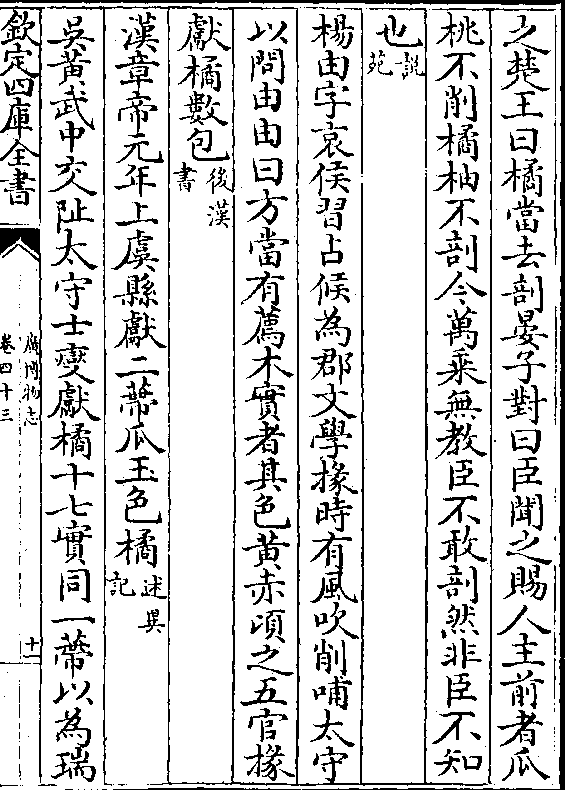 之楚王曰橘當去剖晏子對曰臣聞之賜人主前者瓜
桃不削橘柚不剖今萬乘無教臣不敢剖然非臣不知
也說苑
楊由字哀侯習占候為郡文學掾時有風吹削哺太守
以問由由曰方當有薦木實者其色黄赤頃之五官掾
獻橘數包後漢書
漢章帝元年上虞縣獻二蔕瓜玉色橘述異記
吳黄武中交阯太守士燮獻橘十七實同一蔕以為瑞
欽定四庫全書
廣博物志
卷四十三
十一